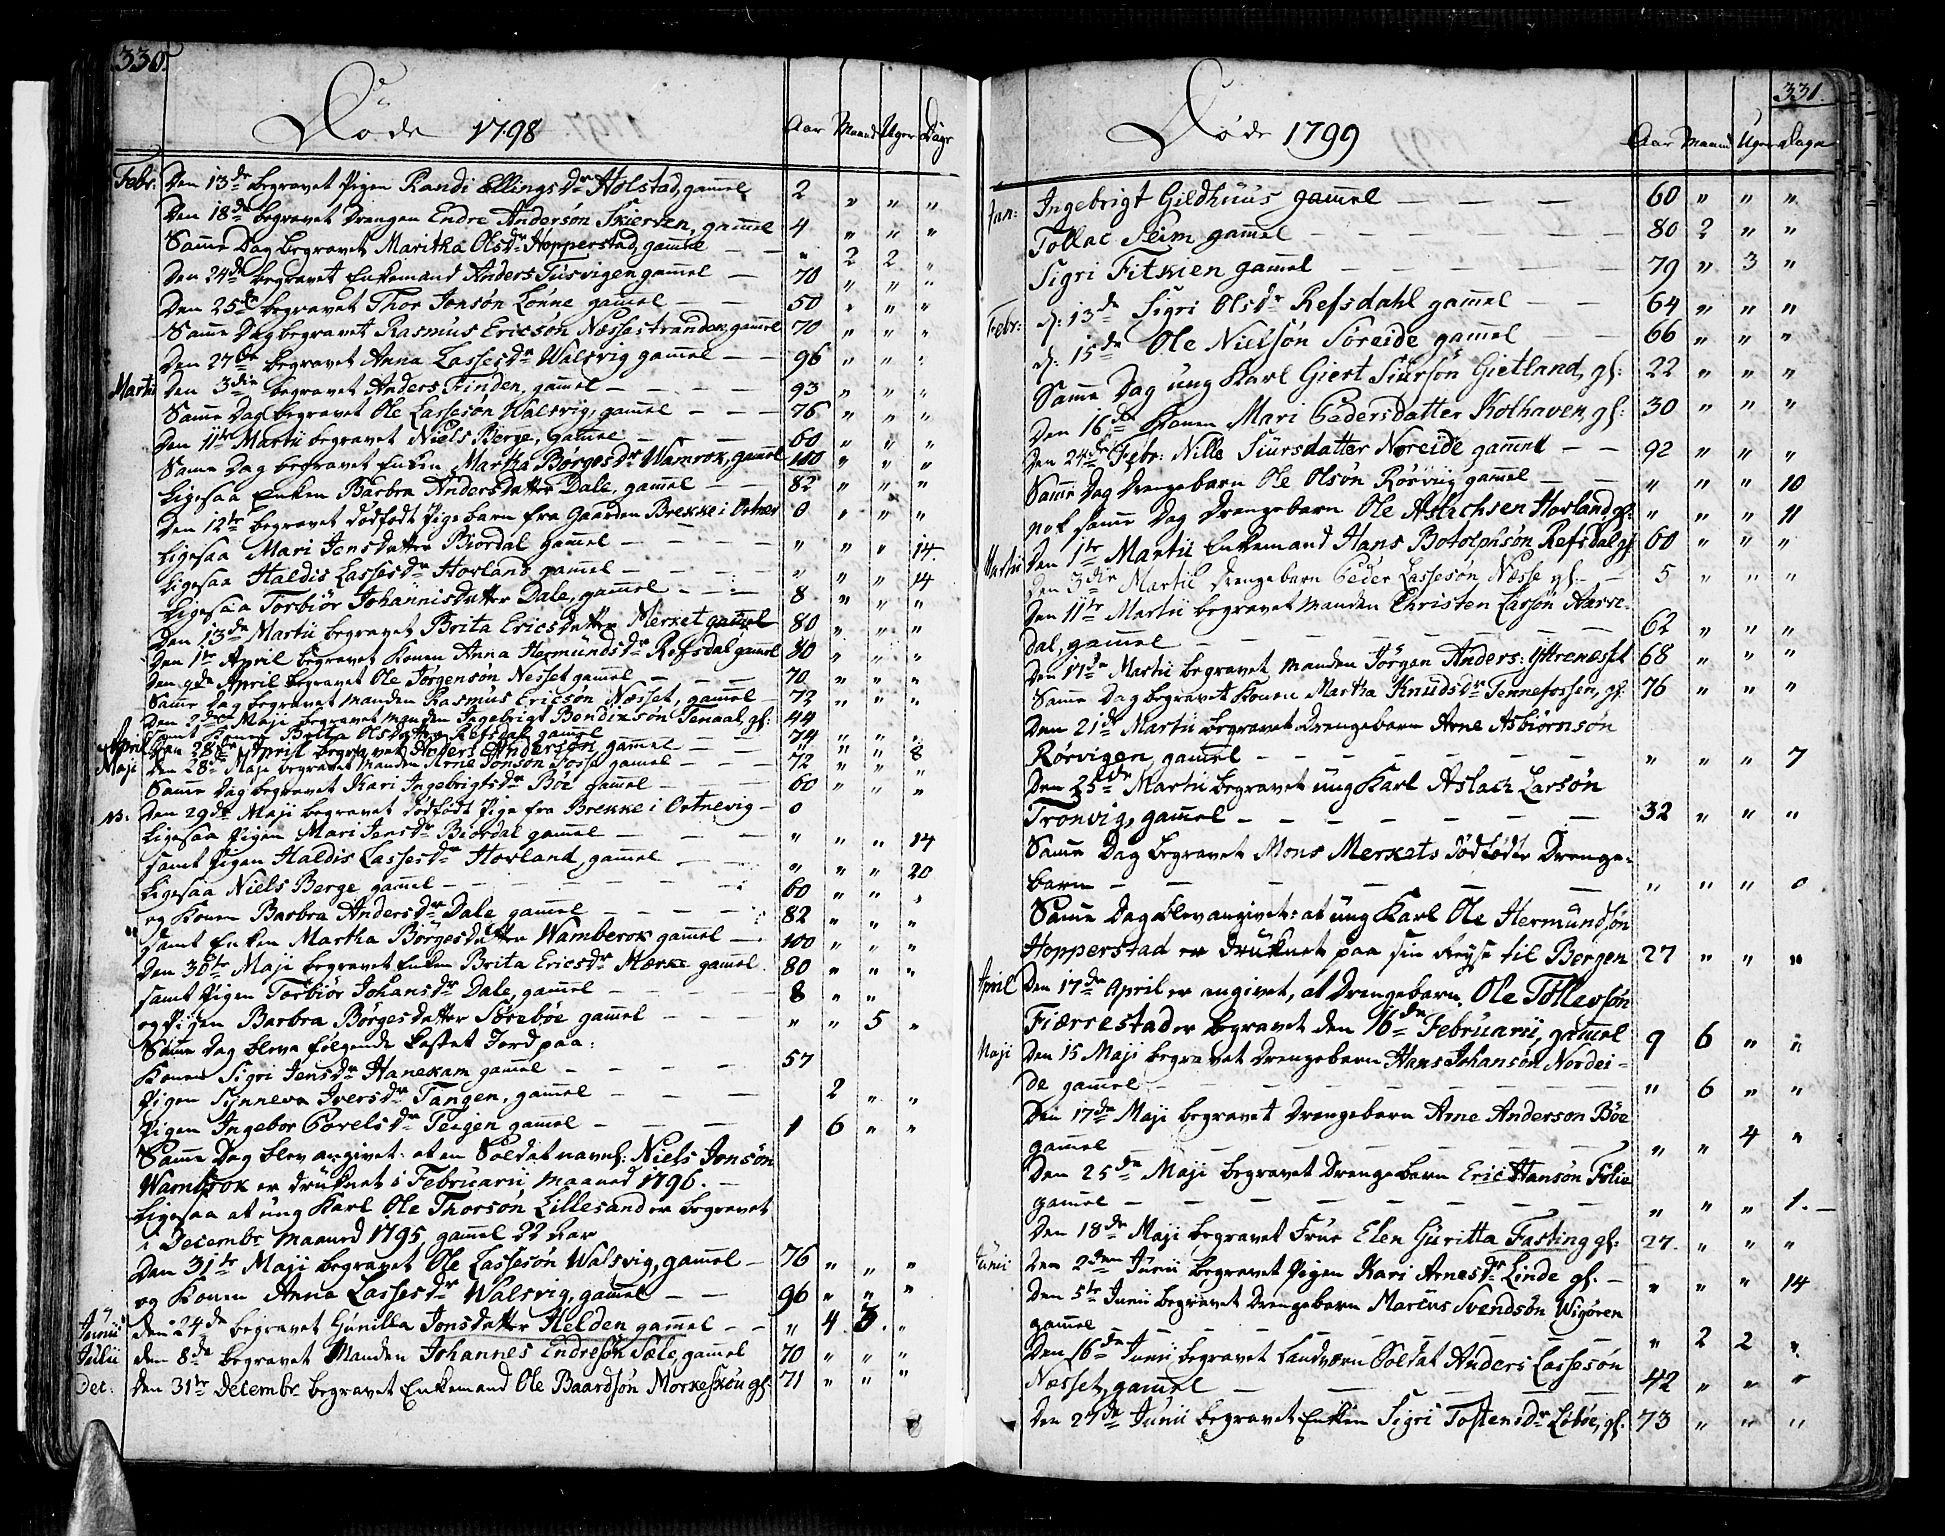 330.
Døde 1798
Aar Maand Uger Dage
Febr: Den 13de begravet Pigen Randi Ellings Dr Holstad, gamel 2 " " "
Den 18de begravet Drengen Endre Andersøn Skierven, gamel 4 " " "
Samme Dag begravet Maritha Olsdr Hopperstad, gamel " 2 2 "
Den 24de begravet Enkemand Anders Tusvigen gamel — 70 " " "
Den 25de begravet Thor Jonsøn Lønne gamel — — 50 " " "
Samme Dag begravet Rasmus Ericsøn Næssestranden, gamel 70 " " "
Den 27de begravet Anna Lassesdr Walsvig gamel — — 96 " " "
Martii Den 3die begravet Anders Finden, gamel — — — 93 " " "
Samme Dag begravet Ole Lassesøn Walsvig, gamel — — 76 " " "
Den 11te Martii begravet Niels Berge, gamel — — — 60 " " "
Samme Dag begravet Enken Martha Børgesdr Wamrok, gamel 100 " " "
Ligesaa Enken Barbra Andersdatter Dale, gamel — — 82 " " "
Den 12te begravet dødfødt Pigebarn fra Gaarden Brekke i Ortnev 0 " " "
Ligesaa Mari Jensdatter Biordal gamel — — — " " " 14.
Ligesaa Haldis Lassesdr Hovland gamel — — — " " " 14
Ligesaa Torbiør Johannisdatter Dale, gamel — — 8. " " "
Den 13de Martii begravet Brita Ericsdatter Merket gamel 80 " " "
Den 1te April begravet Konen Anna Hermundsdr Refsdal gamel 80 " " "
Den 9de April begravet Ole Jørgensøn Nesset gamel — — 70 " " "
Samme Dag begravet Manden Rasmus Ericsøn Næsset, gamel — 72 " " "
Den 2den Maji begravet Manden Ingebrigt Bendixsøn Tenaal, gl: 44
samt Konen Britta Olsdatter Refsdal gamel 74 " " "
April Den 28de April begravet Anders Andersøn, gamel — — " " " 8
Maji Den 28de Maji begravet Manden Arne Jonsøn Fosse gamel — 72 " " "
Samme Dag begravet Kari Ingebrigtsdr Bøe gamel — — 60 " " "
NB: Den 29de Maji begravet dødfødt Pige fra Brekke i Ortnevig — 0
Ligesaa Pigen Mari Jensdr Biordal gamel — — — " " " 14
samt Pigen Haldis Lassesdr Hovland, gamel — — " " " 20
Ligesaa Niels Berge gamel — — — — — 60 " " "
og Konen Barbra Andersdr Dale gamel — — — 82 " " "
samt Enken Martha Børgesdatter Wamberok gamel — 100 " " "
Den 30te Maji begravet Enken Brita Ericsdr Mærke gamel. 80 " " "
samt Pigen Torbiør Johansdr Dale, gamel — — — 8 " "
og Pigen Barbra Børgesdatter Sørebøe gamel — — — " " 5 "
Samme Dag bleve følgende kastet Jord paa:
Konen Sigri Jensdr Hanekam gamel — — — — 57
Pigen Synneva Iversdr Tangen, gamel 2 " "
Pigen Ingebor Povelsdr Teigen gamel — — — 1 6 " "
Samme Dag blev angivet: at en Soldat navnl: Niels Jonsøn
Wambrok er druknet i Februarii Maaned 1796. —
Ligesaa at ung Karl Ole Thorsøn Lillesand er begravet
i Decembr Maaned 1795, gamel 22 Aar
Den 31te Maji begravet Ole Lassesøn Walsvig, gamel — 76 " " "
og Konen Anna Lassesdr Walsvig, gamel — — 96 " " "
Junii den 24de begravet Gunilla Jonsdatter Helden gamel — — " 4 3. "
Julii den 8de begravet Manden Johannes Endresøn Sæle, gamel 70 " " "
Dec: Den 31te Decembr begravet Enkemand Ole Baardsøn Morkeskou gl: 71 " " "
331.
Døde 1799
Aar Maaned Uger Dage
Jan: Ingebrigt Gildhuus gamel — — — 60 " " "
Tollac Seim gamel — — — — — 80 2 " "
Sigri Fitkien gamel — — — — — 79 " 3 "
Febr: d: 13de Sigri Olsdr Refsdahl gamel — — 64 " " "
d: 15de Ole Nielsøn Søreide gamel — — 66 " " "
Samme Dag ung Karl Giert Siursøn Gietland, gl: 22 " " "
Den 16de Konen Mari Pedersdatter Kolhaven, gl: 30 " " "
Den 24de Febr: Nille Siursdatter Noreide gamel — — 92 " " "
Samme Dag Drengebarn Ole Olsøn Rørviig gamel — — " " " 10
nok samme Dag Drengebarn Ole Aslachsen Hovland gl: " " " 11
Martii Den 1te Martii Enkemand Hans Botolphsøn Refsdal gl 60 " " "
Den 3die Martii Drengebarn Peder Lassesøn Næsse gl: — 5 " " "
Den 11te Martii begravet Manden Christen Larsøn Aarre-
dal, gamel — — — — — — — 62 " " "
Den 17de Martii begravet Manden Jørgen Anders: Yttrenæsset 68 " " "
Samme Dag begravet Konen Martha Knudsdr Tennefossen, gl: 76 " " "
Den 21de Martii begravet Drengebarn Arne Asbiørnsøn
Rørvigen, gamel — — — — — — " " " 7
Den 25de Martii begravet ung Karl Aslach Larsøn
Trønvig, gamel — — — — — — 32 " " "
Samme Dag begravet Mons Merkets dødfødte Drenge-
barn — — — — — — " " " 0
Samme Dag blev angivet: at ung Karl Ole Hermundsøn
Hopperstad er druknet paa sin Reyse til Bergen 27 " " "
April Den 17de April er angivet, at Drengebarn Ole Tollevsøn
Fiærrestad er begravet den 16de Februarii, gamel 9 6 " "
Maji Den 15 Maji begravet Drengebarn Hans Johansøn Nordei-
de gamel — — — — — — " 6 " "
Den 17de Maji begravet Drengebarn Arne Anderson Bøe
gamel — — — — — — " " 4 "
Den 25de Maji begravet Drengebarn Eric Hansøn Følie
gamel — — — — — — " " " 1. —
Den 18de Maji begravet Frue Elen Guritta Fasting gl: 27. " " "
Junii Den 2den Junii begravet Pigen Kari Arnesdr Linde gl. — " " " 14
Den 5te Junii begravet Drengebarn Marcus Svendsøn Wigøren
gamel — — — — — — " 2 2 "
Den 16de Junii begravet Landværn Soldat Anders Lassesøn
Næsset, gamel — — — — — 42 " " "
Den 27de Junii begravet Enken Sigri Tostensdr Løbøe, gl: 73 " " "